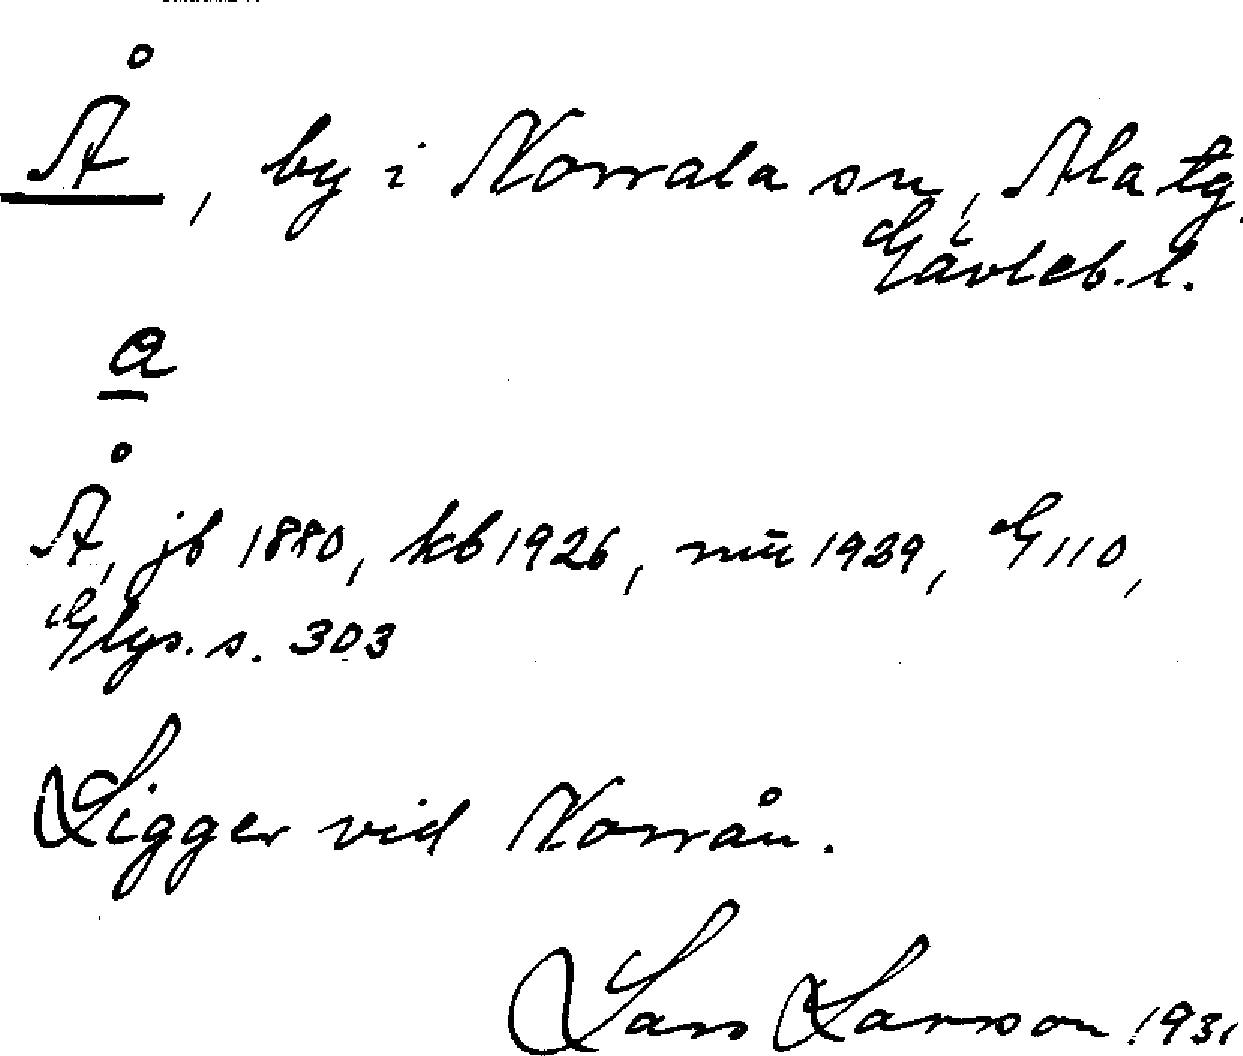 Å, by i Norrala sn, Ala tg.
Gävleb. l.
a
Å, jb 1880, kb 1926, 1939, G 110,
Glys. s. 303
Ligger vid Norrån.
Lars Larsson